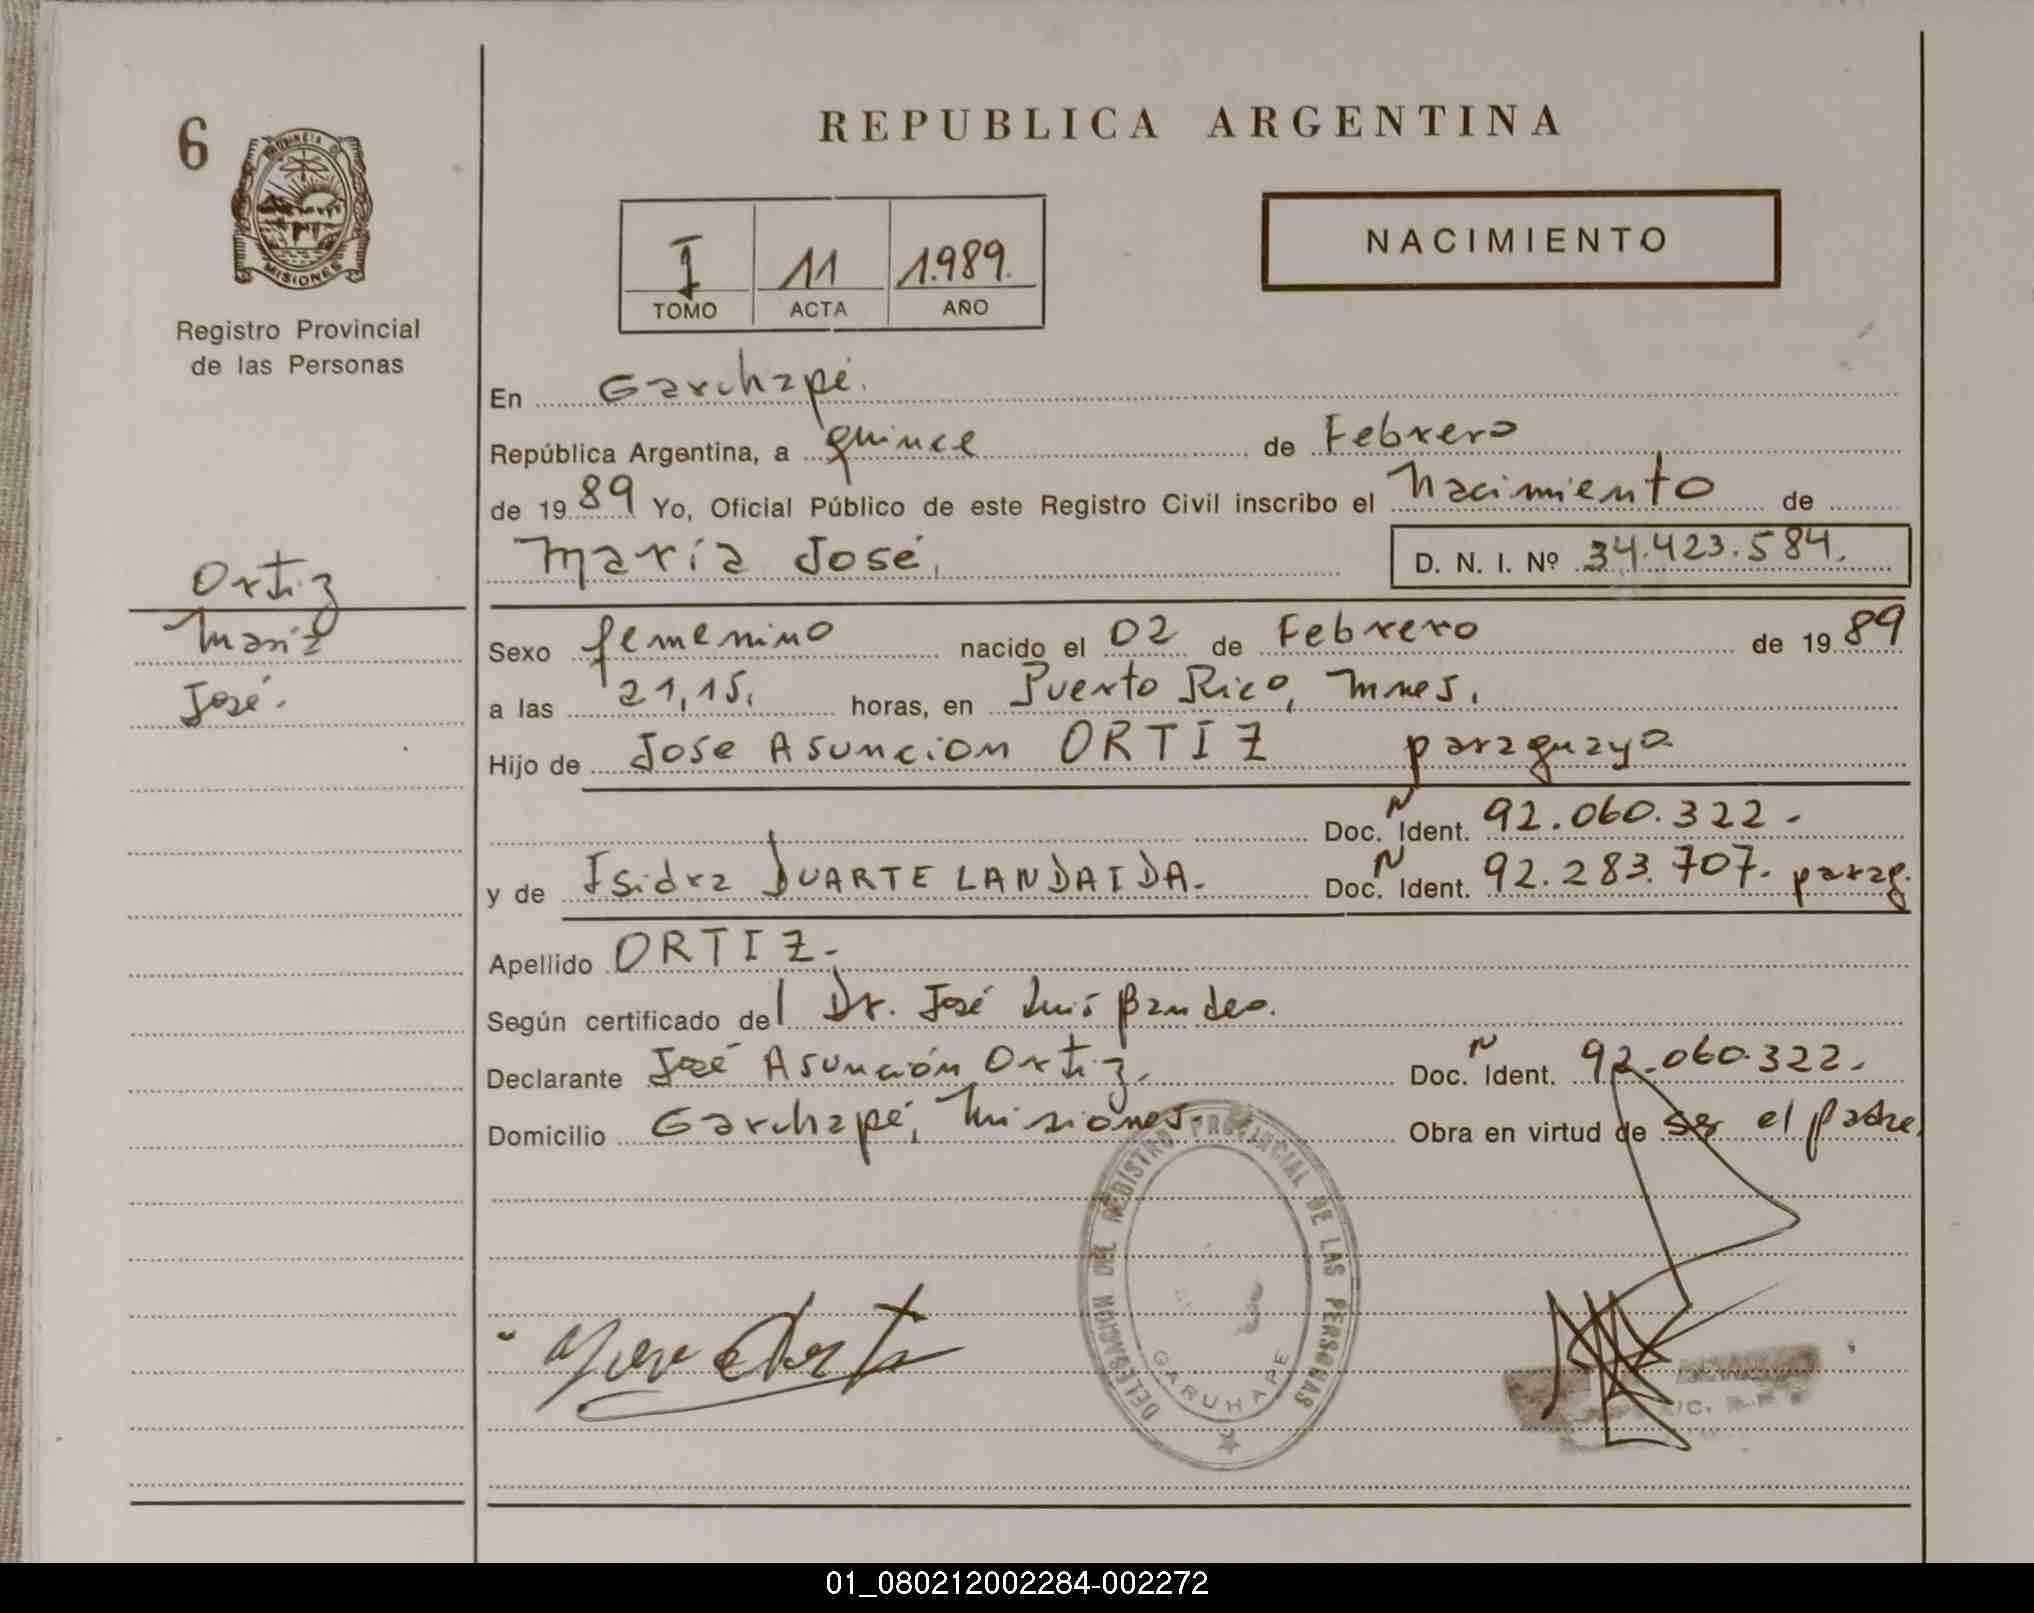 6
REPUBLICA ARGENTINA
PROVINCIA D
MISIONES
Registro Provincial
de las Personas
NACIMIENTO
I 11 1.989.
TOMO ACTA AÑO
En Garuhapé.
República Argentina, a quince de Febrero
de 1989 Yo, Oficial Público de este Registro Civil inscribo el Nacimiento de
María José, D. N. I. Nº 34.423.584.
Ortiz
María
José.
Sexo femenino nacido el 02 de Febrero de 1989
a las 21,15, horas, en Puerto Rico, Mnes.
Hijo de Jose Asuncion ORTIZ paraguayo
Doc. N Ident. 92.060.322.-
y de Isidra DUARTE LANDAIDA.- Doc. N Ident. 92.283.707. parag.
Apellido ORTIZ.-
Según certificado del Dr. José Luis
Declarante José Asunción Ortiz. Doc. N Ident. 92.060.322.
Domicilio Garuhapé, Misiones. Obra en virtud de ser el padre.
DELEGACION DEL REGISTRO PROVINCIAL DE LAS PERSONAS
GARUHAPE
01_080212002284-002272